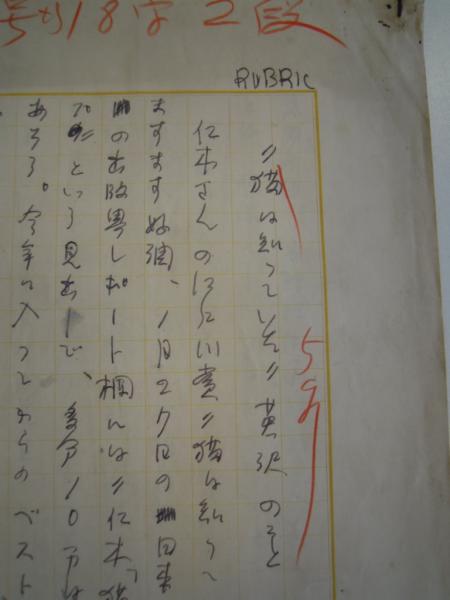 18字2段
RUBRIC
〃猫は知っていた〃英訳のこと
5号
仁木さんの江戸川賞〃猫は知っ
ますます好調、1月27日の
の出版界レポート欄には〃仁木「猫
という見出しで、多分10万は
あろう。今年に入ってからのベスト